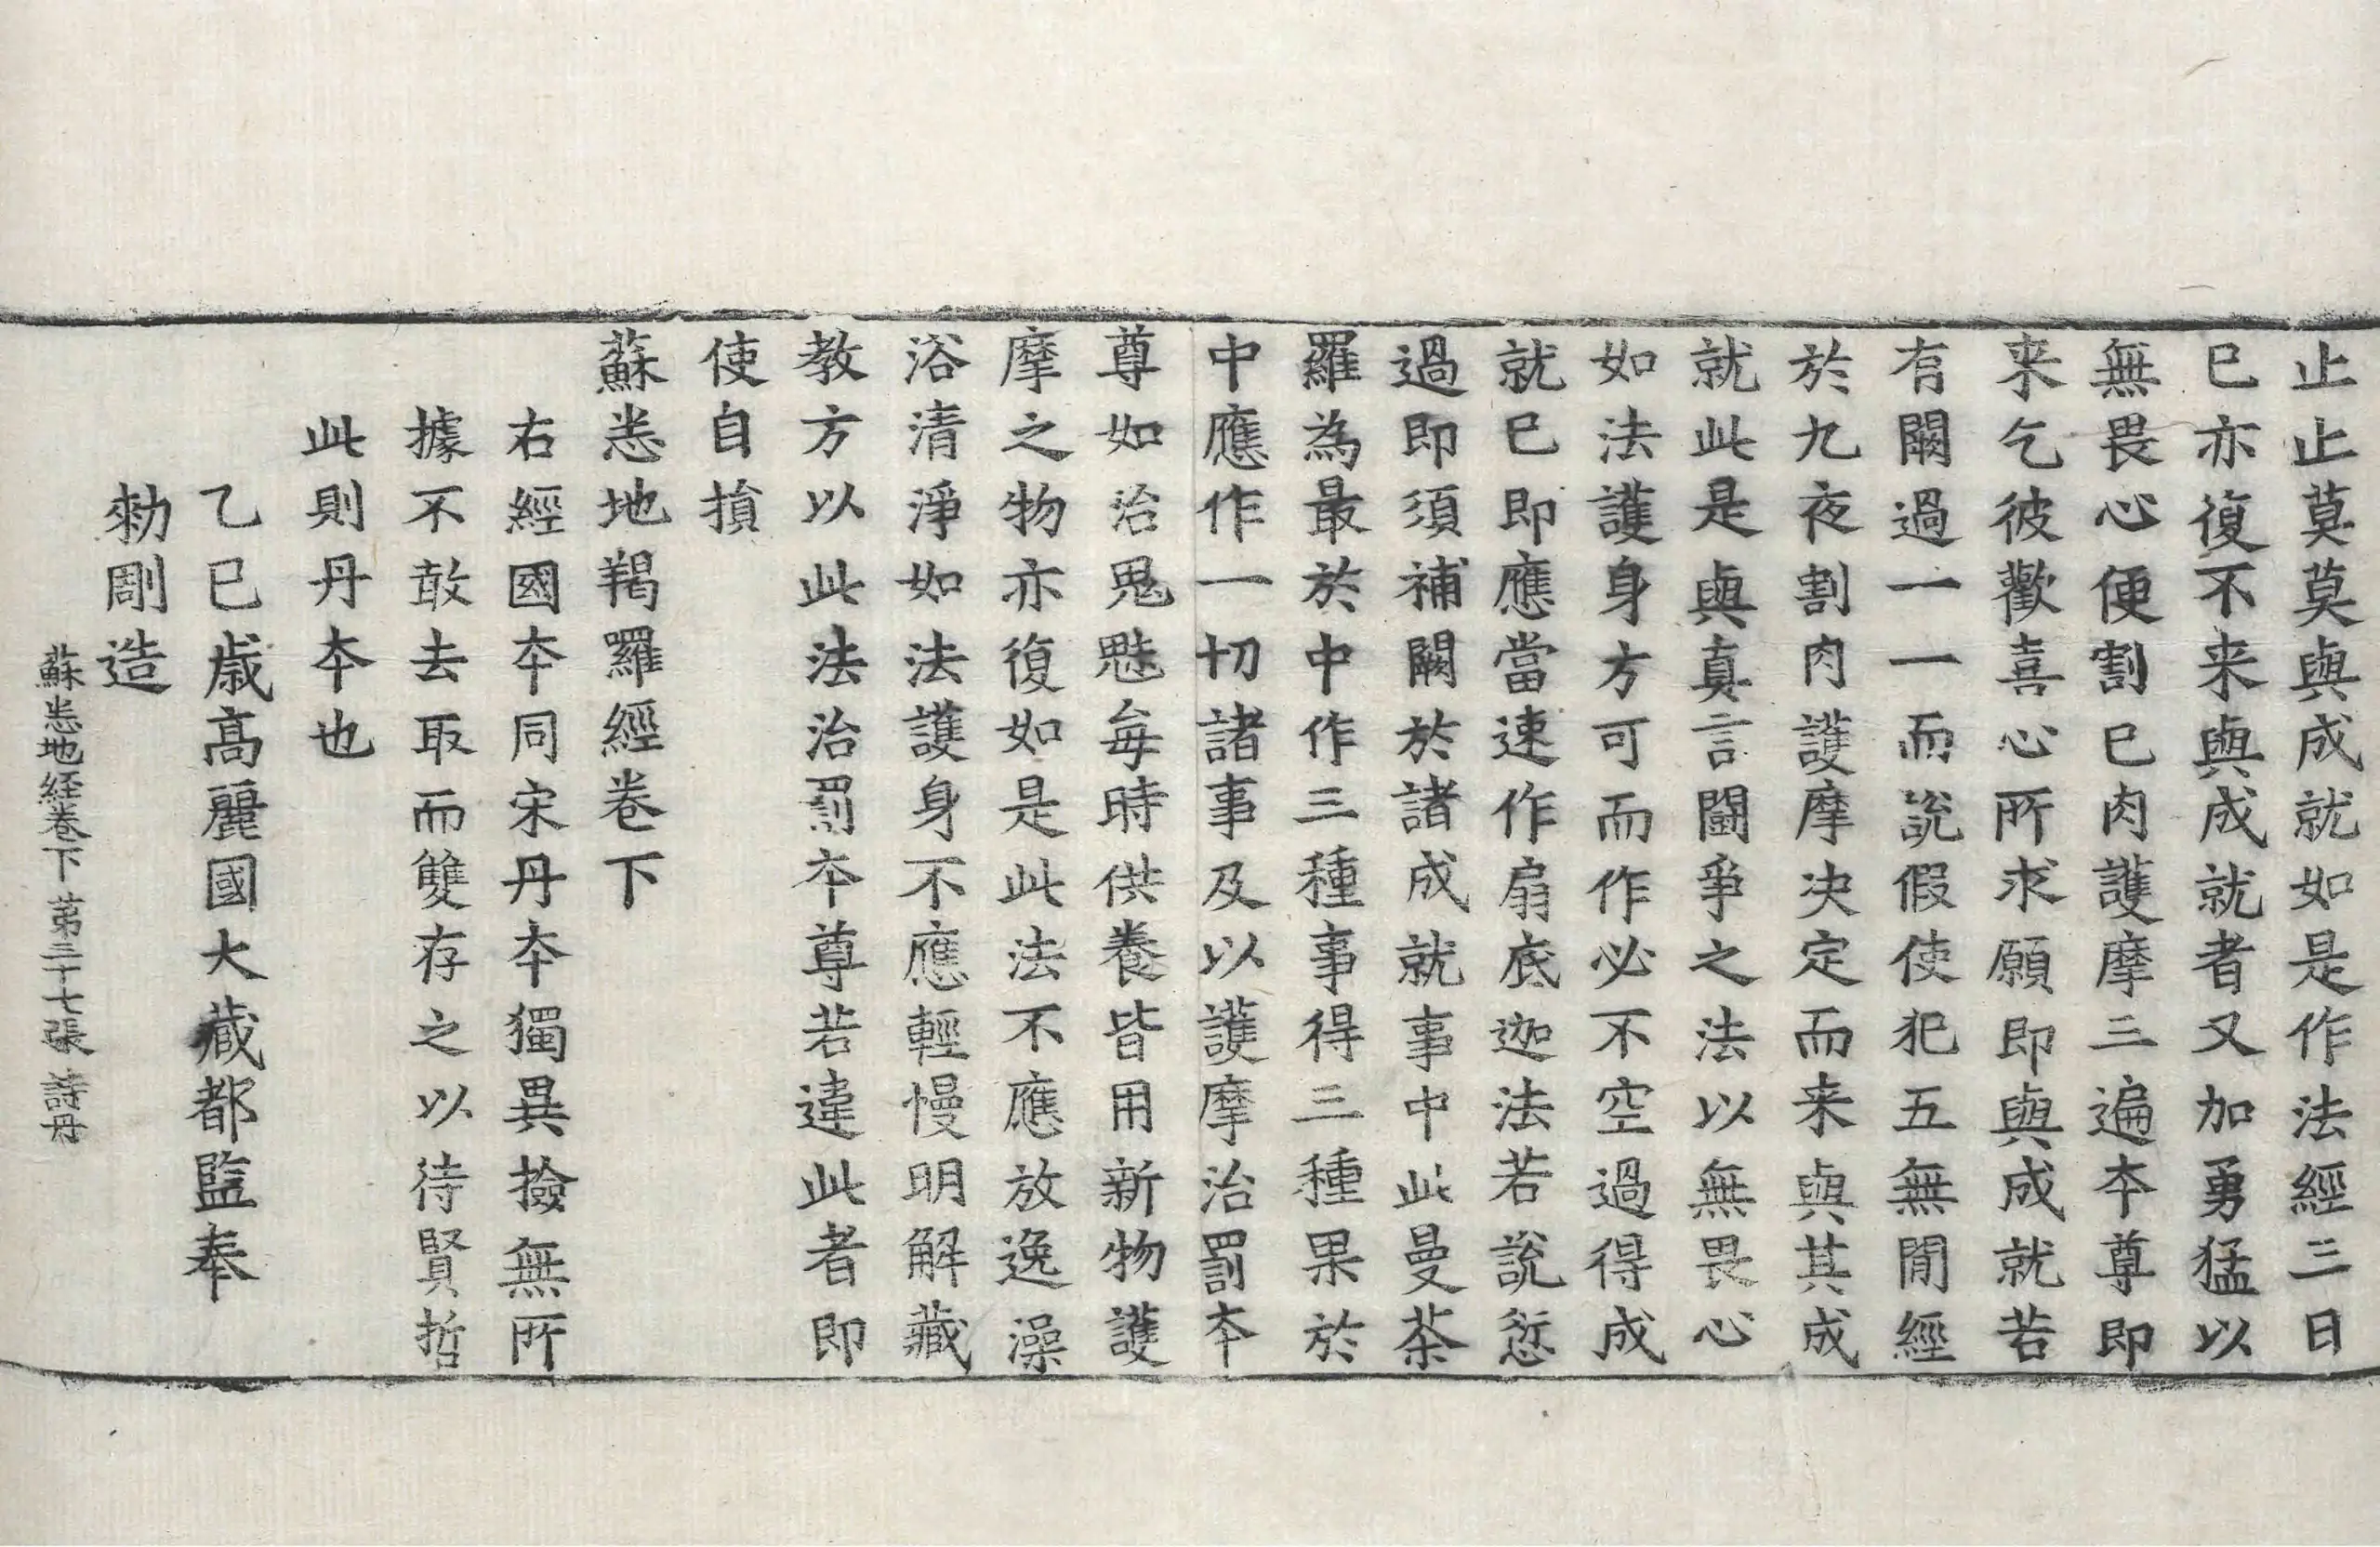 止止莫莫與成就如是作法經三日
已亦復不来與成就者又加勇猛以
無畏心便割已肉護摩三遍本尊即
来乞彼歡喜心所求願即與成就若
有闕過一一而說假使犯五無間經
於九夜割肉護摩决定而来與其成
就此是與真言鬪爭之法以無畏心
如法護身方可而作必不空過得成
就已即應當速作扇底迦法若說愆
過即須補闕於諸成就事中此曼荼
羅為最於中作三種事得三種果於
中應作一切諸事及以護摩治罰本
尊如治鬼魅每時供養皆用新物護
摩之物亦復如是此法不應放逸澡
浴清淨如法護身不應輕慢明解藏
教方以此法治罰本尊若違此者即
使自損
蘇悉地羯羅經卷下
右經國本同宋丹本獨異撿無所
據不敢去取而雙存之以待賢哲
此則丹本也
乙巳歳高麗國大藏都監奉
勑剛造
蘇悉地経卷下 第三十七張 詩丹